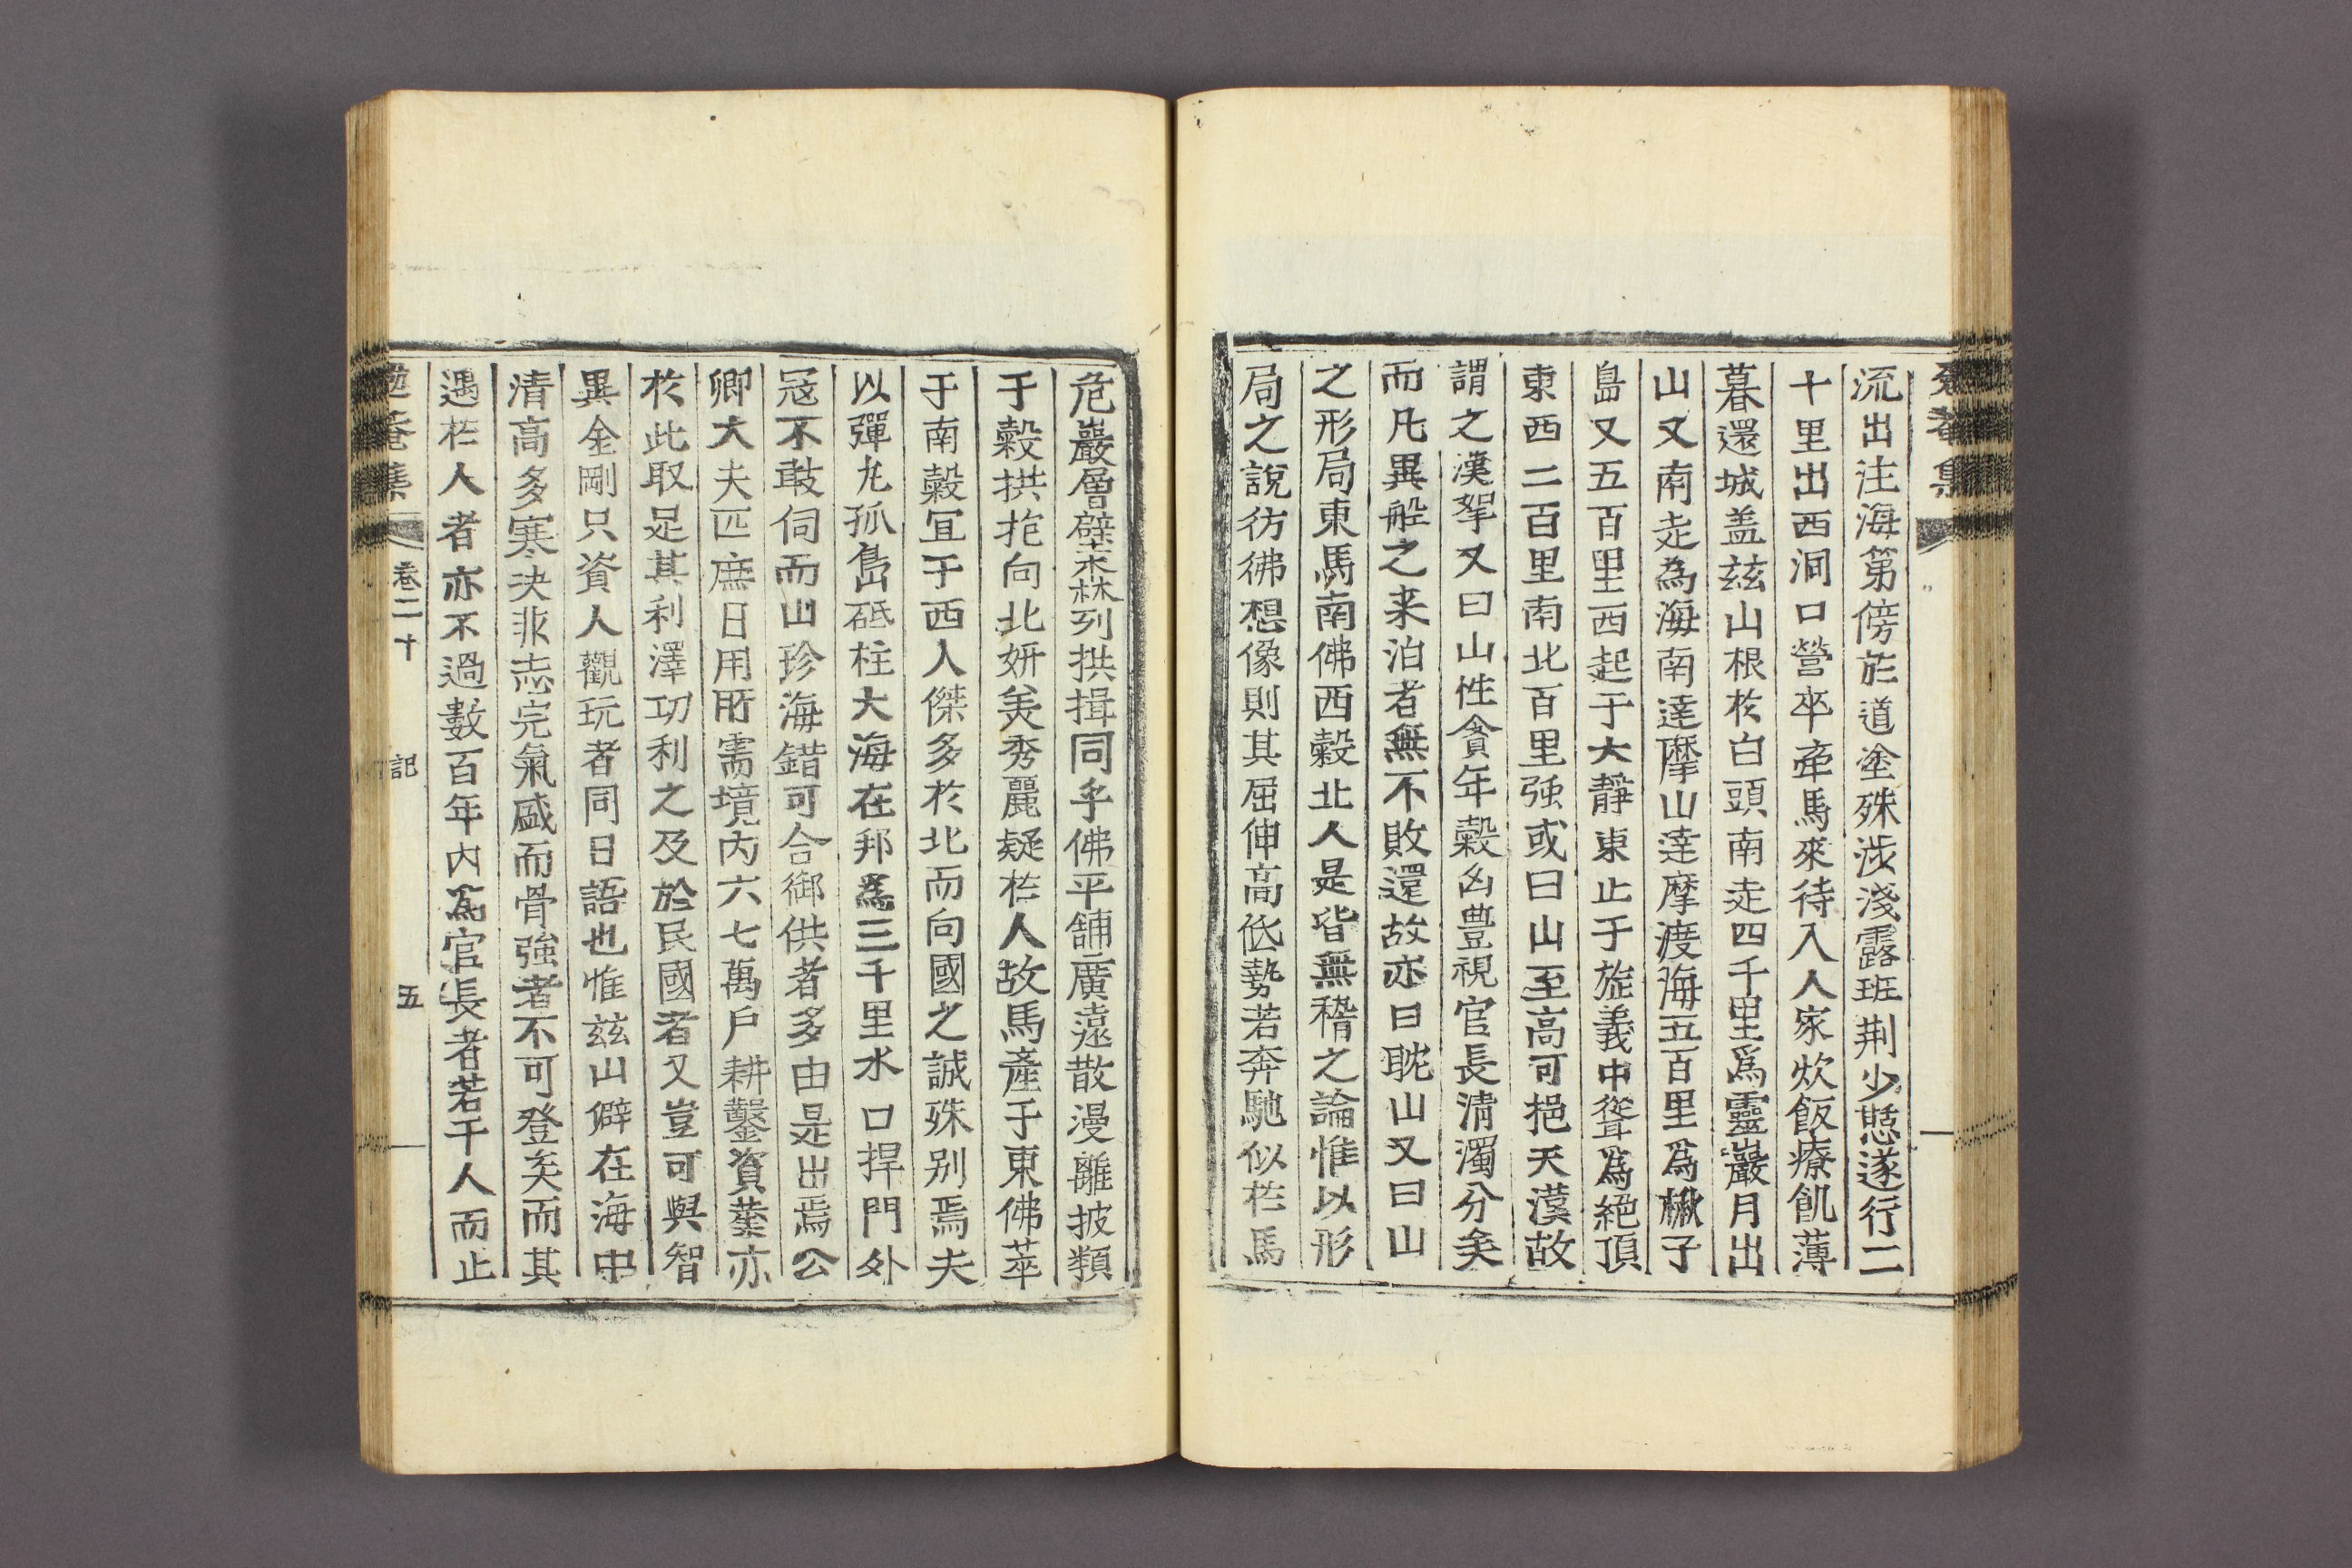 勉菴集
流出注海第傍於道塗殊涉淺露班荆少憇遂行二
十里出西洞口營卒牽馬來待入人家炊飯療飢薄
暮還城盖玆山根於白頭南走四千里爲靈巖月出
山又南走為海南達摩山達摩渡海五百里爲楸子
島又五百里西起于大靜東止于㫌義中聳爲絕頂
東西二百里南北百里强或曰山至高可挹天漢故
謂之漢拏又曰山性貪年穀凶豊視官長清濁分矣
而凡異船之来泊者無不敗還故亦曰耽山又曰山
之形局東馬南佛西穀北人是皆無稽之論惟以形
局之說彷彿想像則其屈伸高低勢若奔馳似於馬
危巖層壁森列拱揖同乎佛平鋪廣遠散漫離披類
于穀拱抱向北妍美秀麗疑於人故馬產于東佛萃
于南穀宜于西人傑多於北而向國之誠殊别焉夫
以彈丸孤島砥柱大海在邦爲三千里水口捍門外
冦不敢伺而山珍海錯可合御供者多由是出焉公
卿大夫匹庶日用所需境內六七萬戶耕鑿資業亦
於此取足其利澤功利之及於民國者又豈可與智
異金剛只資人觀玩者同日語也惟玆山僻在海中
清高多寒决非志完氣盛而骨強者不可登矣而其
遇於人者亦不過數百年內爲官長者若干人而止
勉菴集 卷二十 記 五